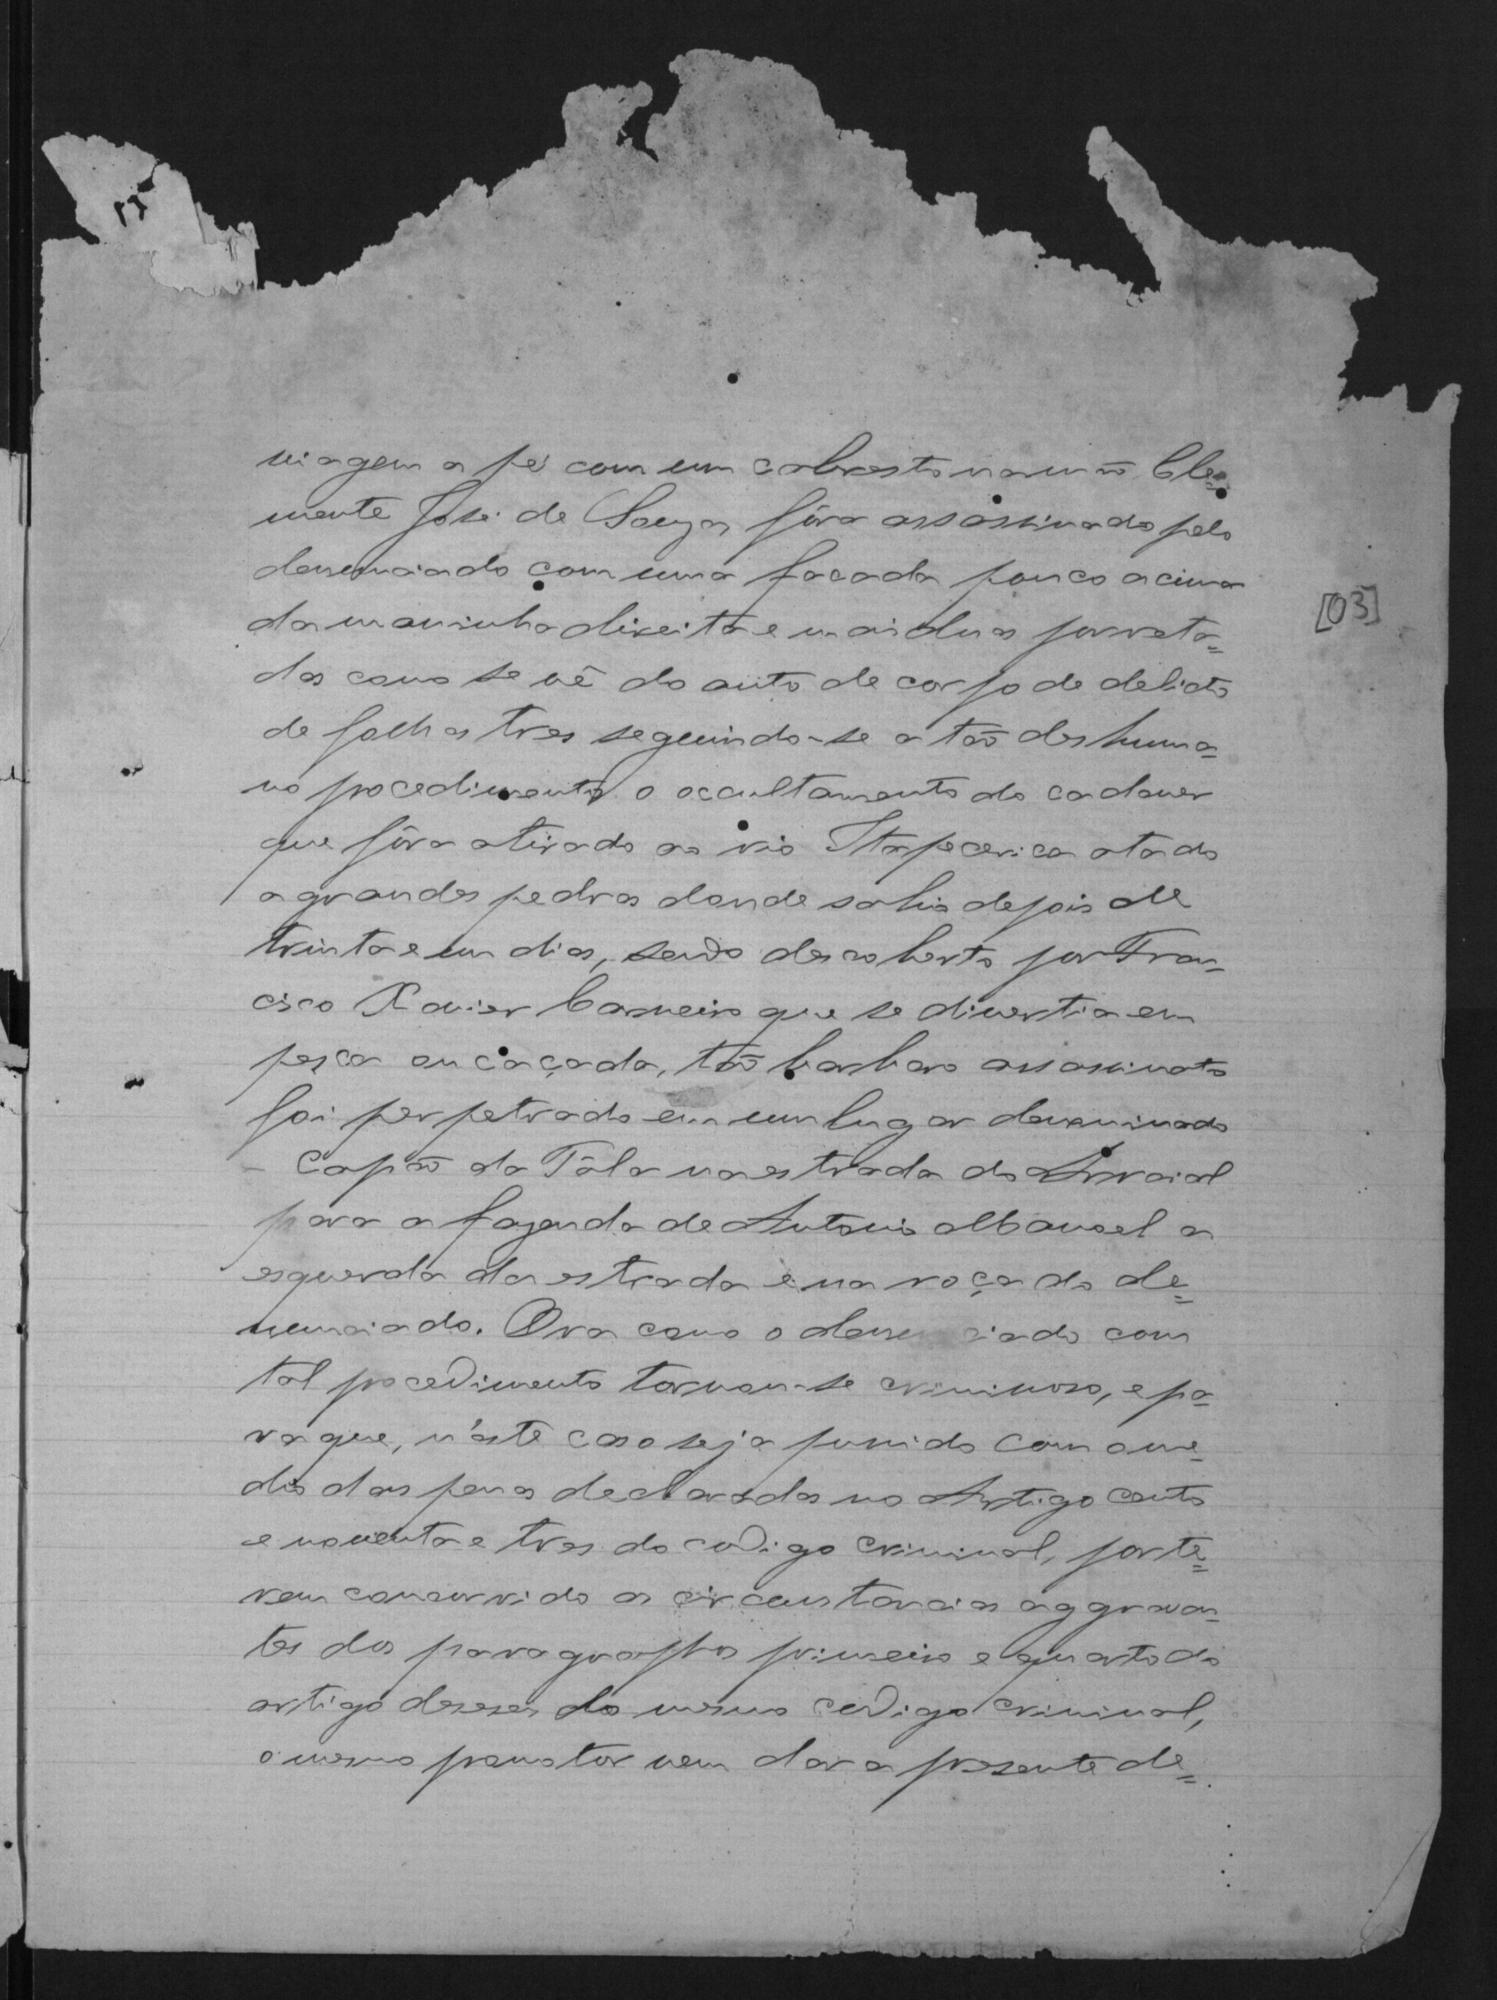 viagem a pé com um cabresto na mão Cle=
mente José de Souza, fôra assassinado pelo
denunciado com uma facada pouco acima
da maminha direita e mais duas porreta=
das como se vê do auto de corpo de delicto
de folhas tres seguindo-se a tão deshuma=
no procedimento o occultamento do cadaver
que fôra atirado ao rio Itapecerica atado
a grandes pedras donde sahio depois de
trinta e um dias, sendo descoberto por Fran=
cisco Xavier Carneiro que se divertia em
pesca ou caçada, tão barbaro assassinato
foi perpetrado em um lugar denominado
- Capão da Tála na estrada do Arraial
para a fazenda de Antonio Manoel a
esquerda da estrada e na roça do de=
nunciado. Ora como o denunciado com
tal procedimento tornou-se criminoso, e pa=
ra que, n'este caso seja punido com o me=
dio das penas declaradas no Artigo cento
e noventa e tres do codigo criminal, por te=
rem concorrido as circunstancias aggravan=
tes dos paragraphos primeiro e quarto do
artigo deseseis do mesmo codigo criminal,
o mesmo promotor vem dar a presente de=
[03]